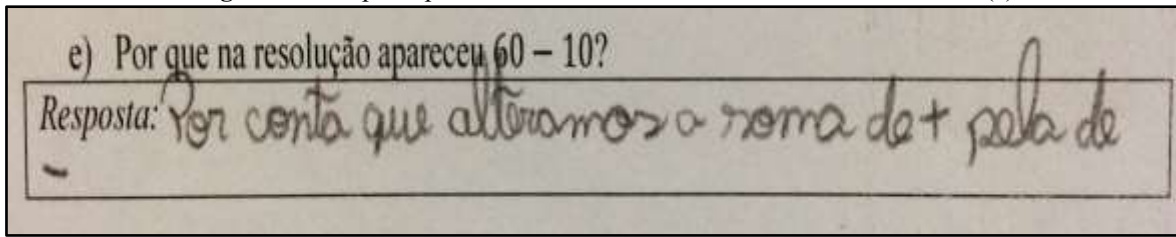 e) Por que na resolução apareceu 60 – 10?
Resposta: Por conta que alteramos a soma de + pela de
-